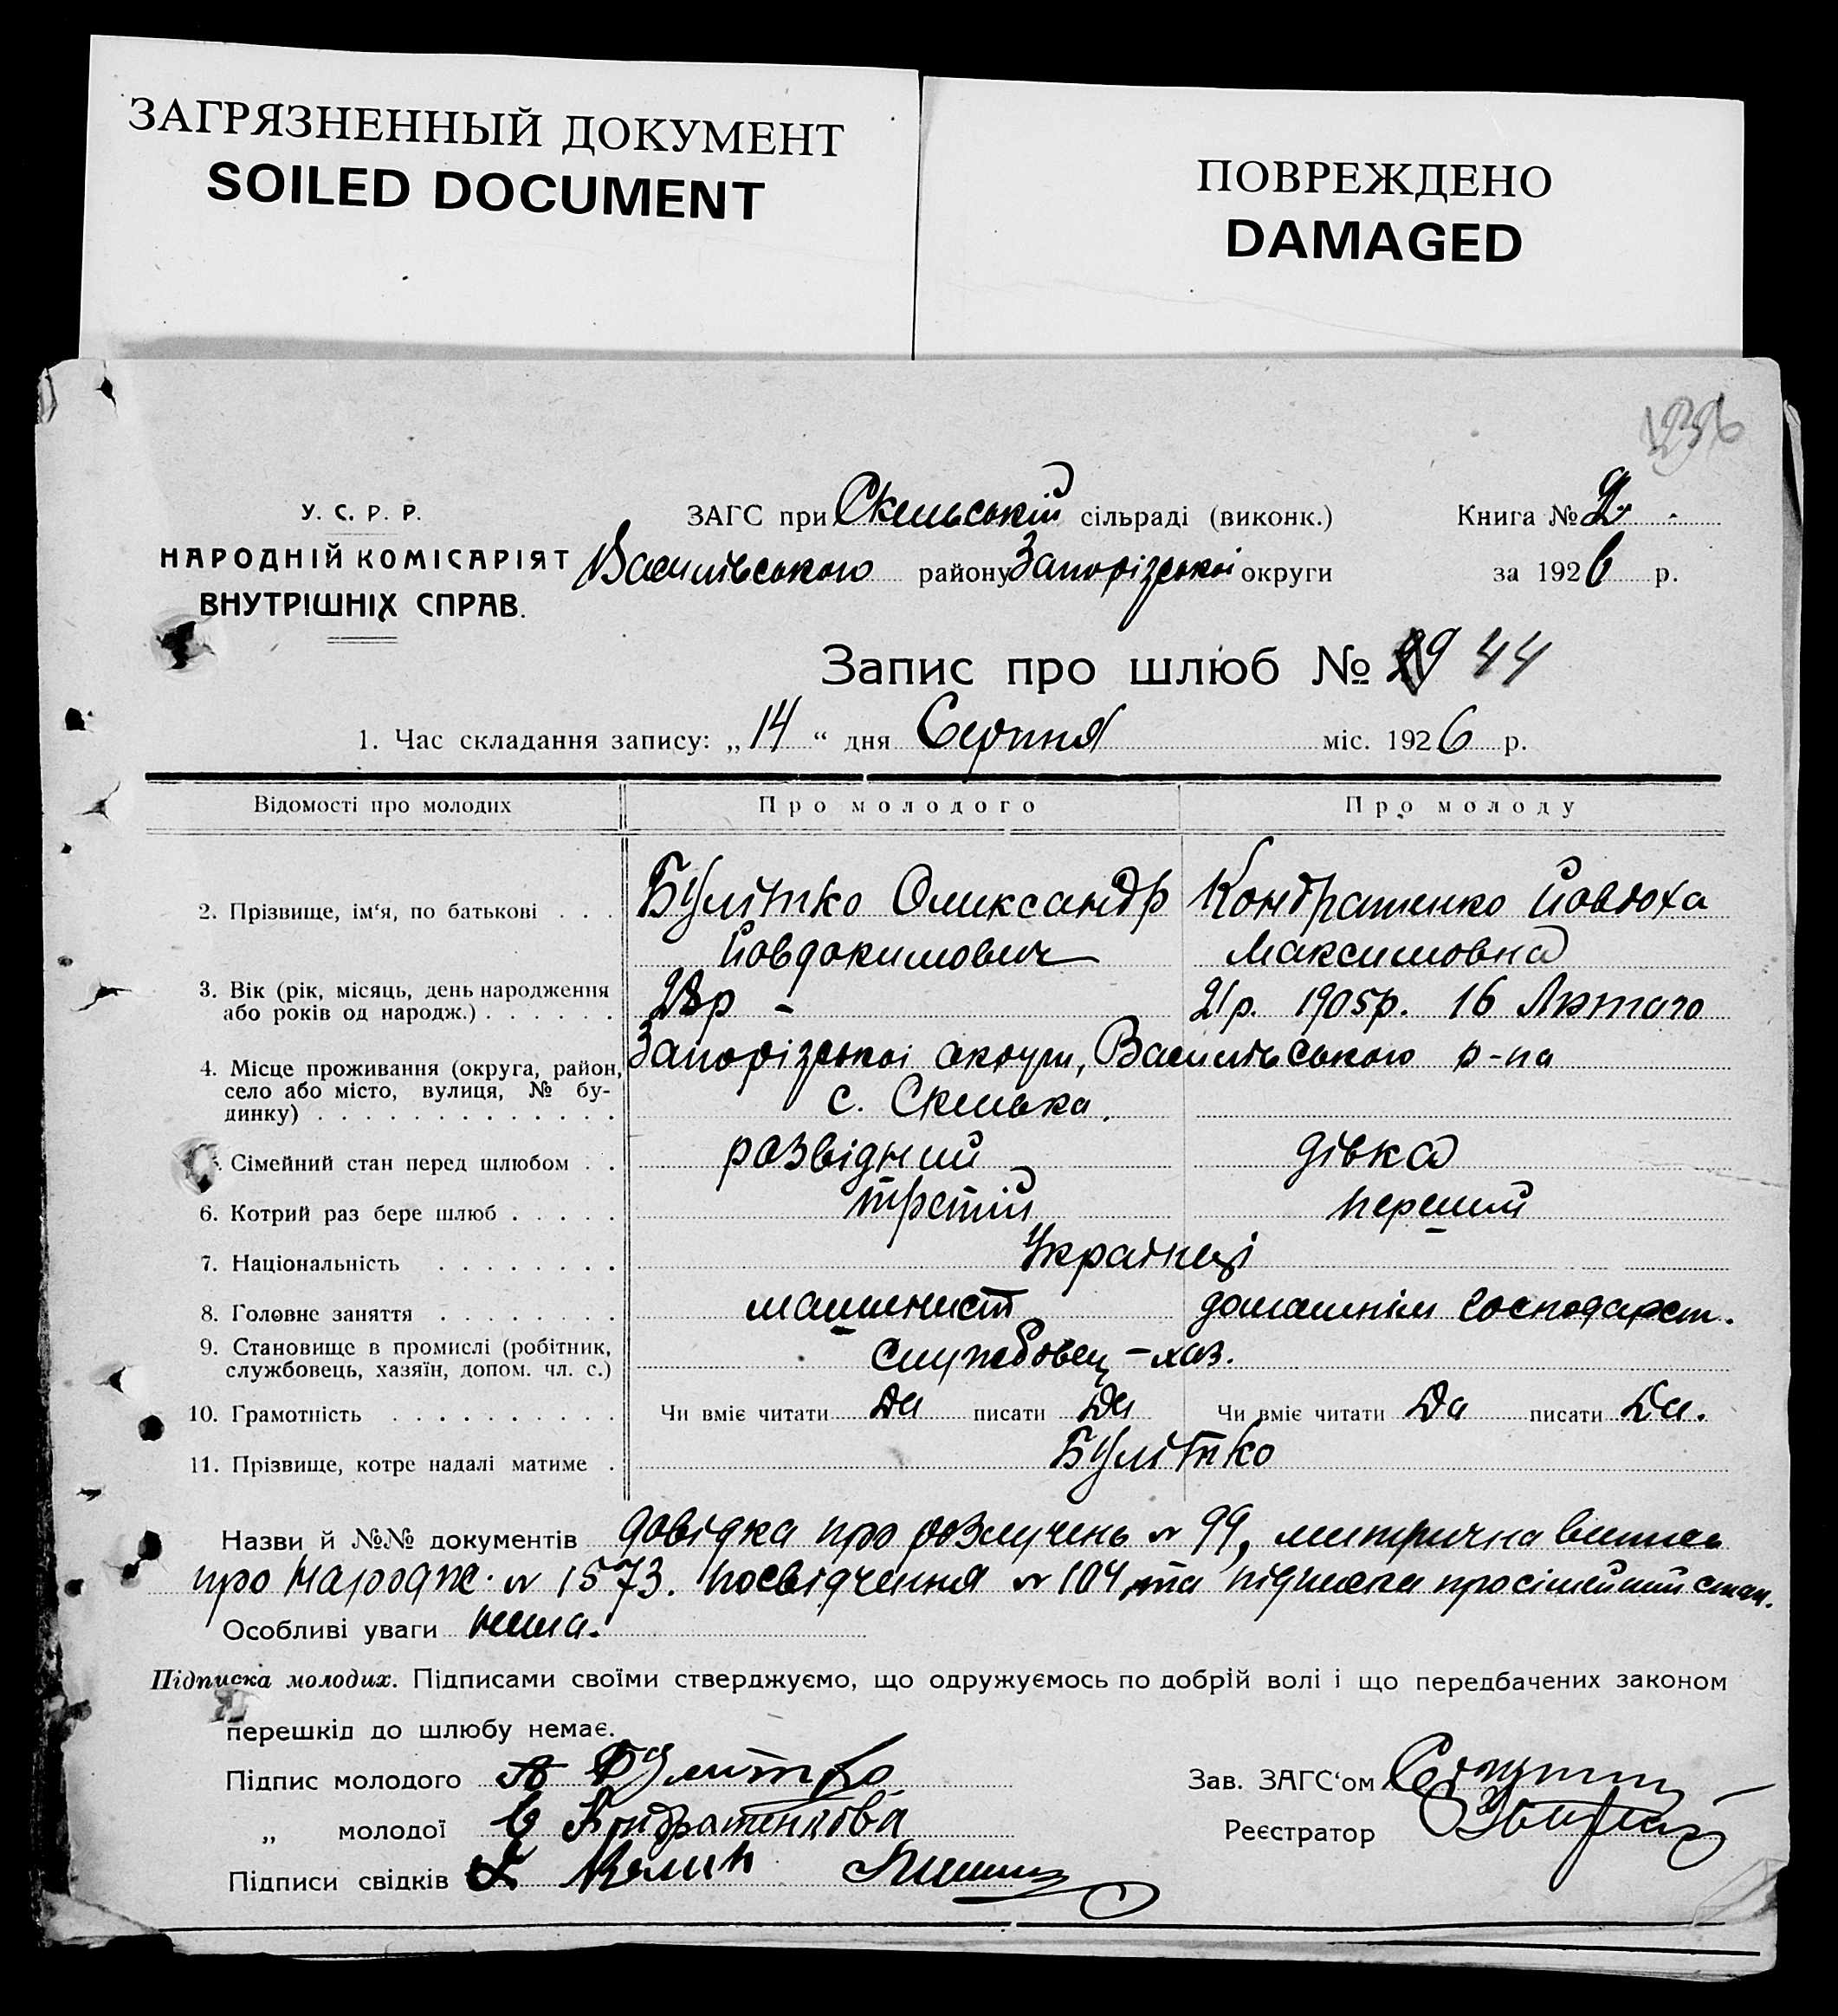 ЗАГРЯЗНЕННЫЙ ДОКУМЕНТ
SOILED DOCUMENT
ПОВРЕЖДЕНО
DAMAGED
У. С. Р. Р.
НАРОДНІЙ КОМІСАРІЯТ
ВНУТРІШНІХ СПРАВ.
ЗАГС при Скельській сільраді (виконк.)
Василівського району Запорізської округи
Книга № 2
за 1926 р.
Запис про шлюб № 44
1. Час складання запису: „ 14 “ дня Серпня міс. 1926 р.
Відомості про молодих Про молодого Про молоду
2. Прізвище, ім‘я, по батькові . . . Булітко Олександр Кондратенко Йовдоха
Йовдокимович Максимовна
3. Вік (рік, місяць, день народження
або років од народж.) . . . . . . 21р. 1905р. 16 Лютого
4. Місце проживання (округа, район, Запорізської округи, Василівського р-на
село або місто, вулиця, № бу-
динку) . . . . . . . . . . . . . с. Скелька.
Сімейний стан перед шлюбом . . розвідний дівка
6. Котрий раз бере шлюб . . . . . третій перший
7. Національність . . . . . . . . Українці
8. Головне заняття . . . . . . . . машинист домашнім господарст.
9. Становище в промислі (робітник,
службовець, хазяїн, допом. чл. с.) службовец – хаз.
10. Грамотність . . . . . . . . . . Чи вміє читати Да писати Да Чи вміє читати Да писати Да.
11. Прізвище, котре надалі матиме . Булітко
Назви й №№ документів довідка про розлучень № 99, митрична випись
про народж. № 1573. посвідчення № 104 та підписка про сімейний стан.
Особливі уваги нема.
Підписка молодих. Підписами своїми стверджуємо, що одружуємось по добрій волі і що передбачених законом
перешкід до шлюбу немає.
Підпис молодого А Булитко
Зав. ЗАГС‘ом
„ молодої Е Кондратенкова
Реєстратор
Підписи свідків